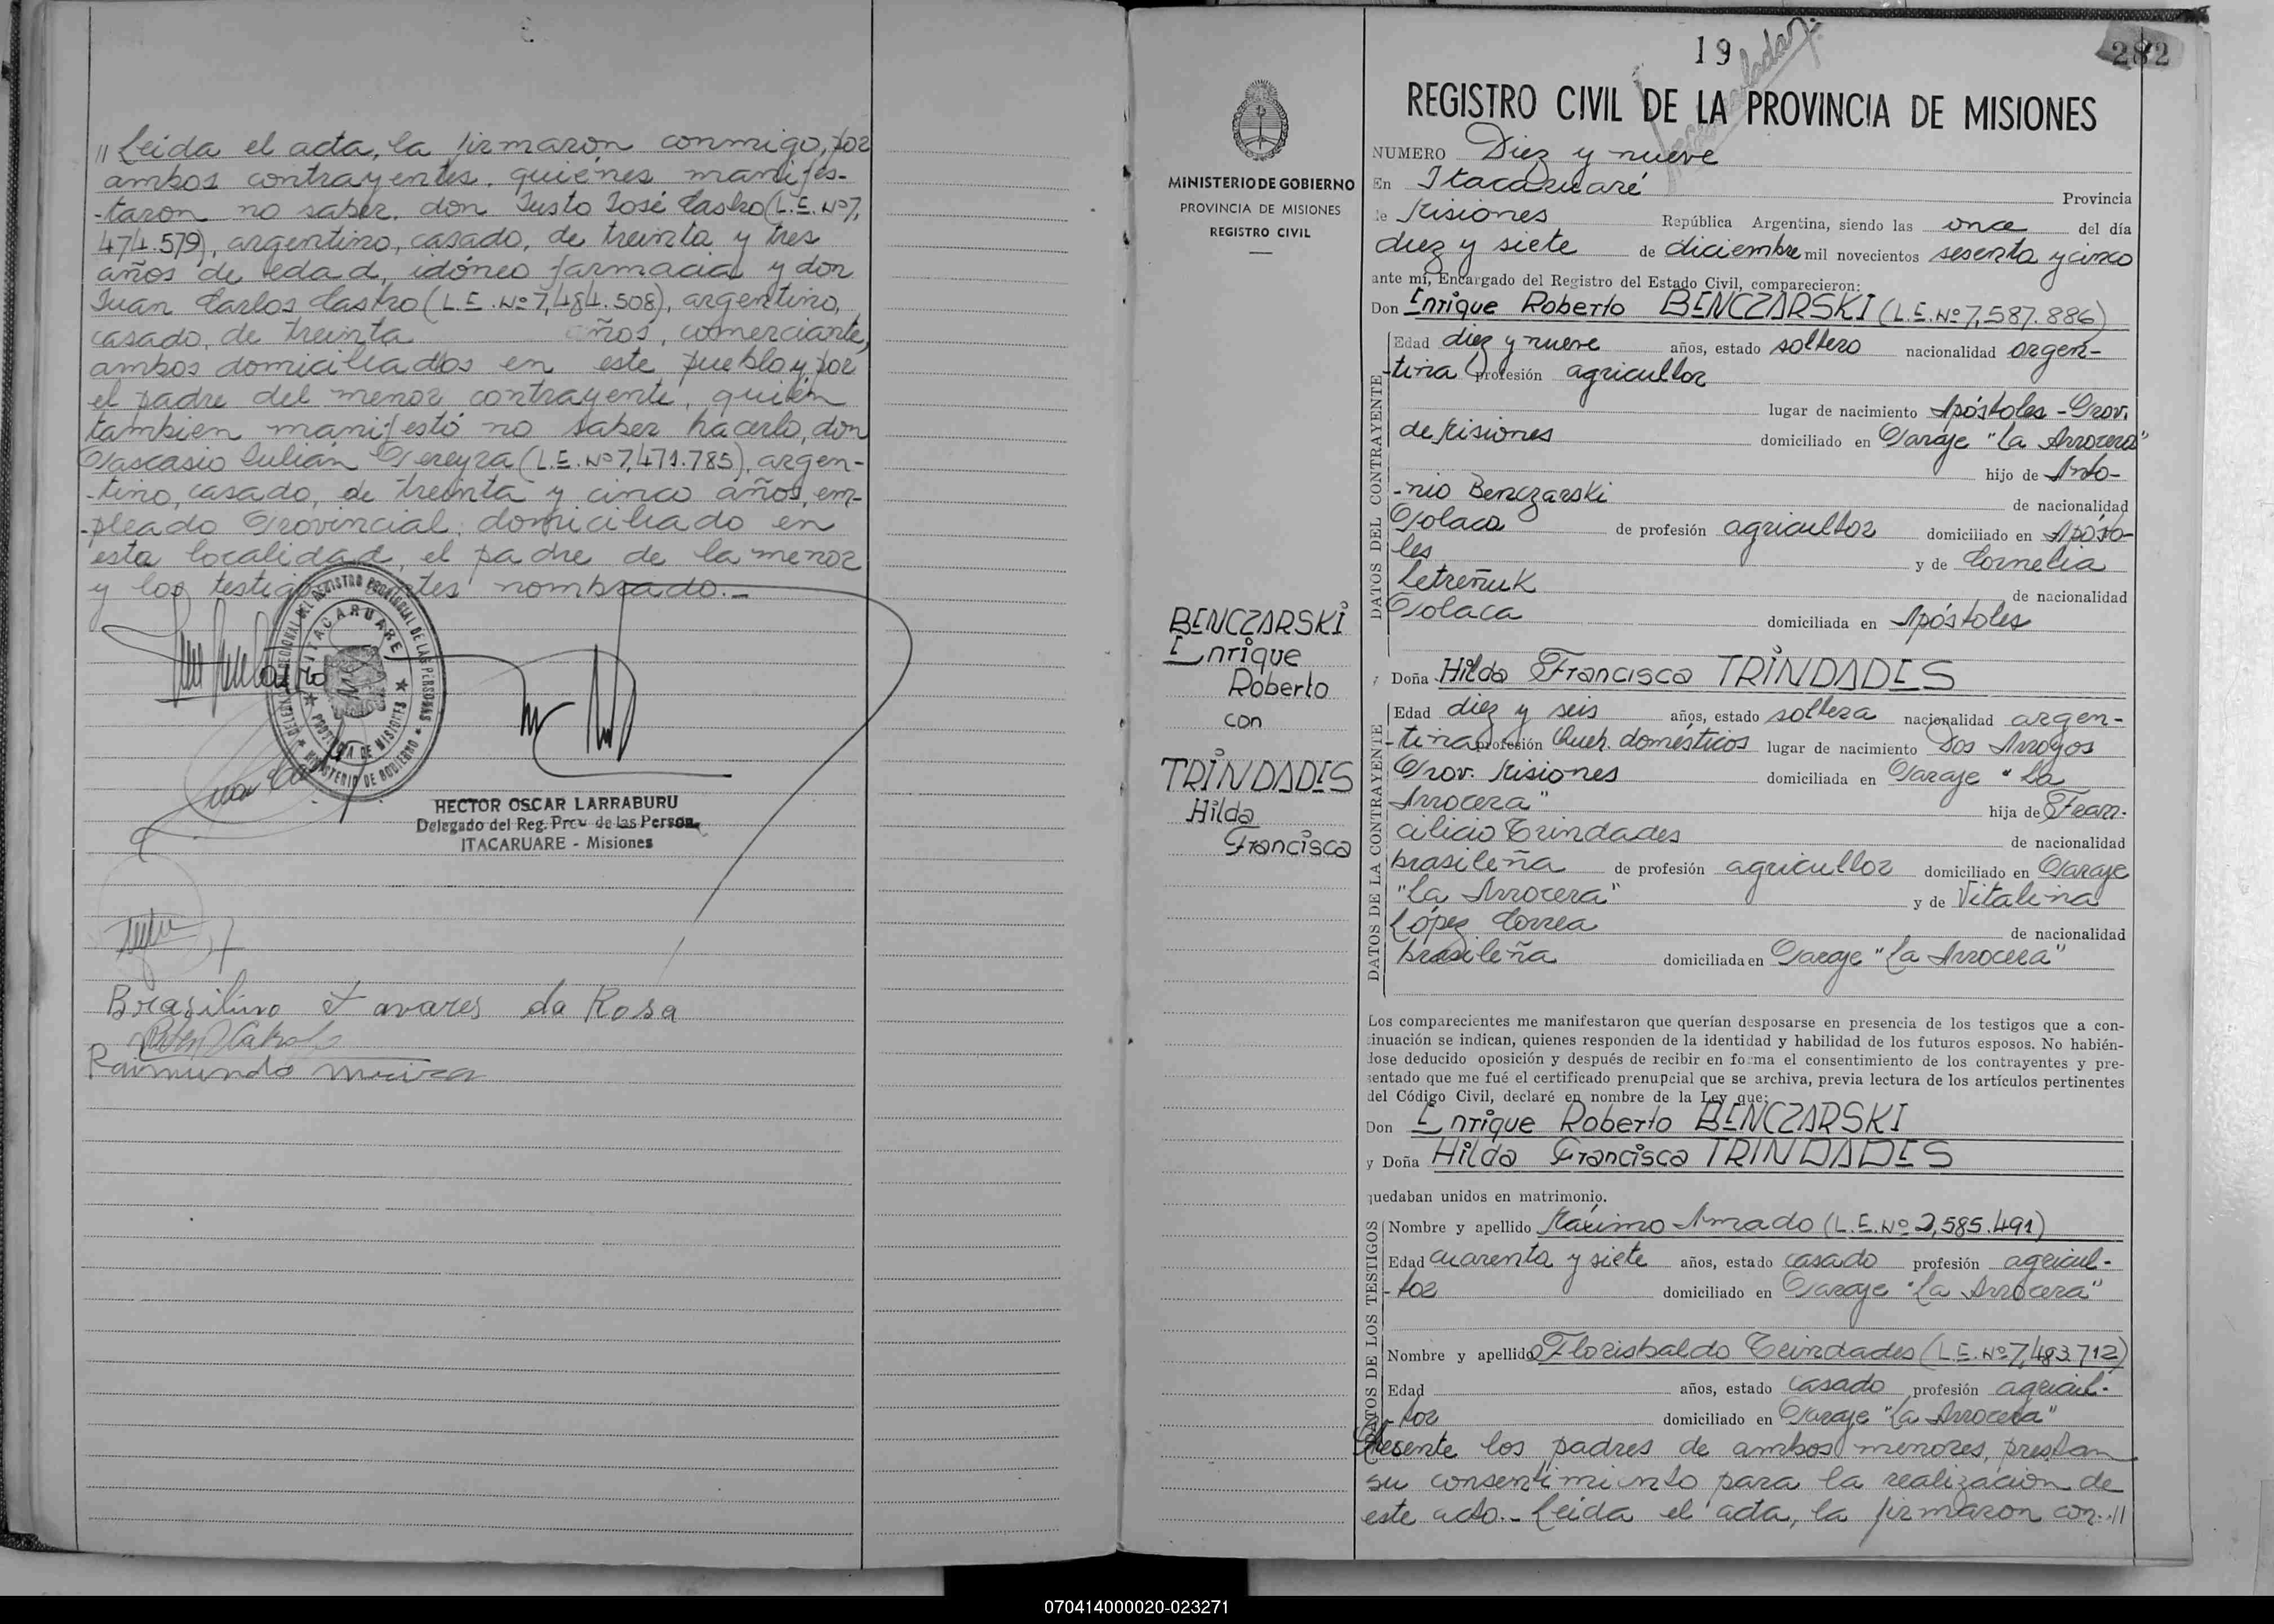 " Leida el acta, la firmaron conmigo, por
ambos contrayentes, quiénes manifes-
-taron no saber, don Justo José Castro (L.E. Nº 7,
474.579), argentino, casado, de treinta y tres
años de edad, idóneo farmacia y don
Juan Carlos Castro (L.E. Nº 7,484.508), argentino,
casado, de treinta años, comerciante,
ambos domiciliados en este pueblo y por
el padre del menor contrayente, quién
tambien manifestó no saber hacerlo, don
Pascasio Julián Pereyra (L.E. Nº 7,471.785), argen-
-tino, casado, de treinta y cinco años, em-
-pleado Provincial, domiciliado en
esta localidad, el padre de la menor
y los testigos antes nombrado.-
DELEGACION REGIONAL DEL REGISTRO PROVINCIAL DE LAS PERSONAS
ITACARUARE
PROVINCIA DE MISIONES
MINISTERIO DE GOBIERNO
HECTOR OSCAR LARRABURU
Delegado del Reg. Prov. de las Person.
ITACARUARE - Misiones
Brasilino Tavares da Rosa
Raimundo
19
282
REGISTRO CIVIL DE LA PROVINCIA DE MISIONES
MINISTERIO DE GOBIERNO
PROVINCIA DE MISIONES
REGISTRO CIVIL
BENCZARSKI
Enrique
Roberto
con
TRINDADES
Hilda
Francisca
NUMERO Diez y nueve
En Itacaruaré Provincia
de Misiones República Argentina, siendo las once del día
diez y siete de diciembre mil novecientos sesenta y cinco
ante mí, Encargado del Registro del Estado Civil, comparecieron:
Don Enrique Roberto BENCZARSKI (L.E. Nº 7,587.886)
DATOS DEL CONTRAYENTE
Edad diez y nueve años, estado soltero nacionalidad argen-
-tina profesión agricultor
lugar de nacimiento Apóstoles - Prov.
de Misiones domiciliado en Paraje "La Arrocera"
hijo de Anto-
-nio Benczarski de nacionalidad
Polaca de profesión agricultor domiciliado en Apósto-
les y de Cornelia
Letreñuk de nacionalidad
Polaca domiciliada en Apóstoles
y Doña Hilda Francisca TRINDADES
DATOS DE LA CONTRAYENTE
Edad diez y seis años, estado soltera nacionalidad argen-
-tina profesión Queh. domésticos lugar de nacimiento Dos Arroyos
Prov. Misiones domiciliada en Paraje "La
Arrocera" hija de Fran-
cilicio Trindades de nacionalidad
brasileña de profesión agricultor domiciliado en Paraje
"La Arrocera" y de Vitalina
López Correa de nacionalidad
brasileña domiciliada en Paraje "La Arrocera"
Los comparecientes me manifestaron que querían desposarse en presencia de los testigos que a con-
tinuación se indican, quienes responden de la identidad y habilidad de los futuros esposos. No habién-
dose deducido oposición y después de recibir en forma el consentimiento de los contrayentes y pre-
sentado que me fué el certificado prenupcial que se archiva, previa lectura de los artículos pertinentes
del Código Civil, declaré en nombre de la Ley que:
Don Enrique Roberto BENCZARSKI
y Doña Hilda Francisca TRINDADES
quedaban unidos en matrimonio.
DATOS DE LOS TESTIGOS
Nombre y apellido Máximo Amado (L.E. Nº 2,585.491)
Edad cuarenta y siete años, estado casado profesión agricul-
-tor domiciliado en Paraje "La Arrocera"
Nombre y apellido Florisbaldo Trindades (L.E. Nº 7,483.712)
Edad años, estado casado profesión agricul-
-tor domiciliado en Paraje "La Arrocera"
Presente los padres de ambos menores, prestan
su consentimiento para la realización de
este acto.- Leida el acta, la firmaron con..//
070414000020-023271